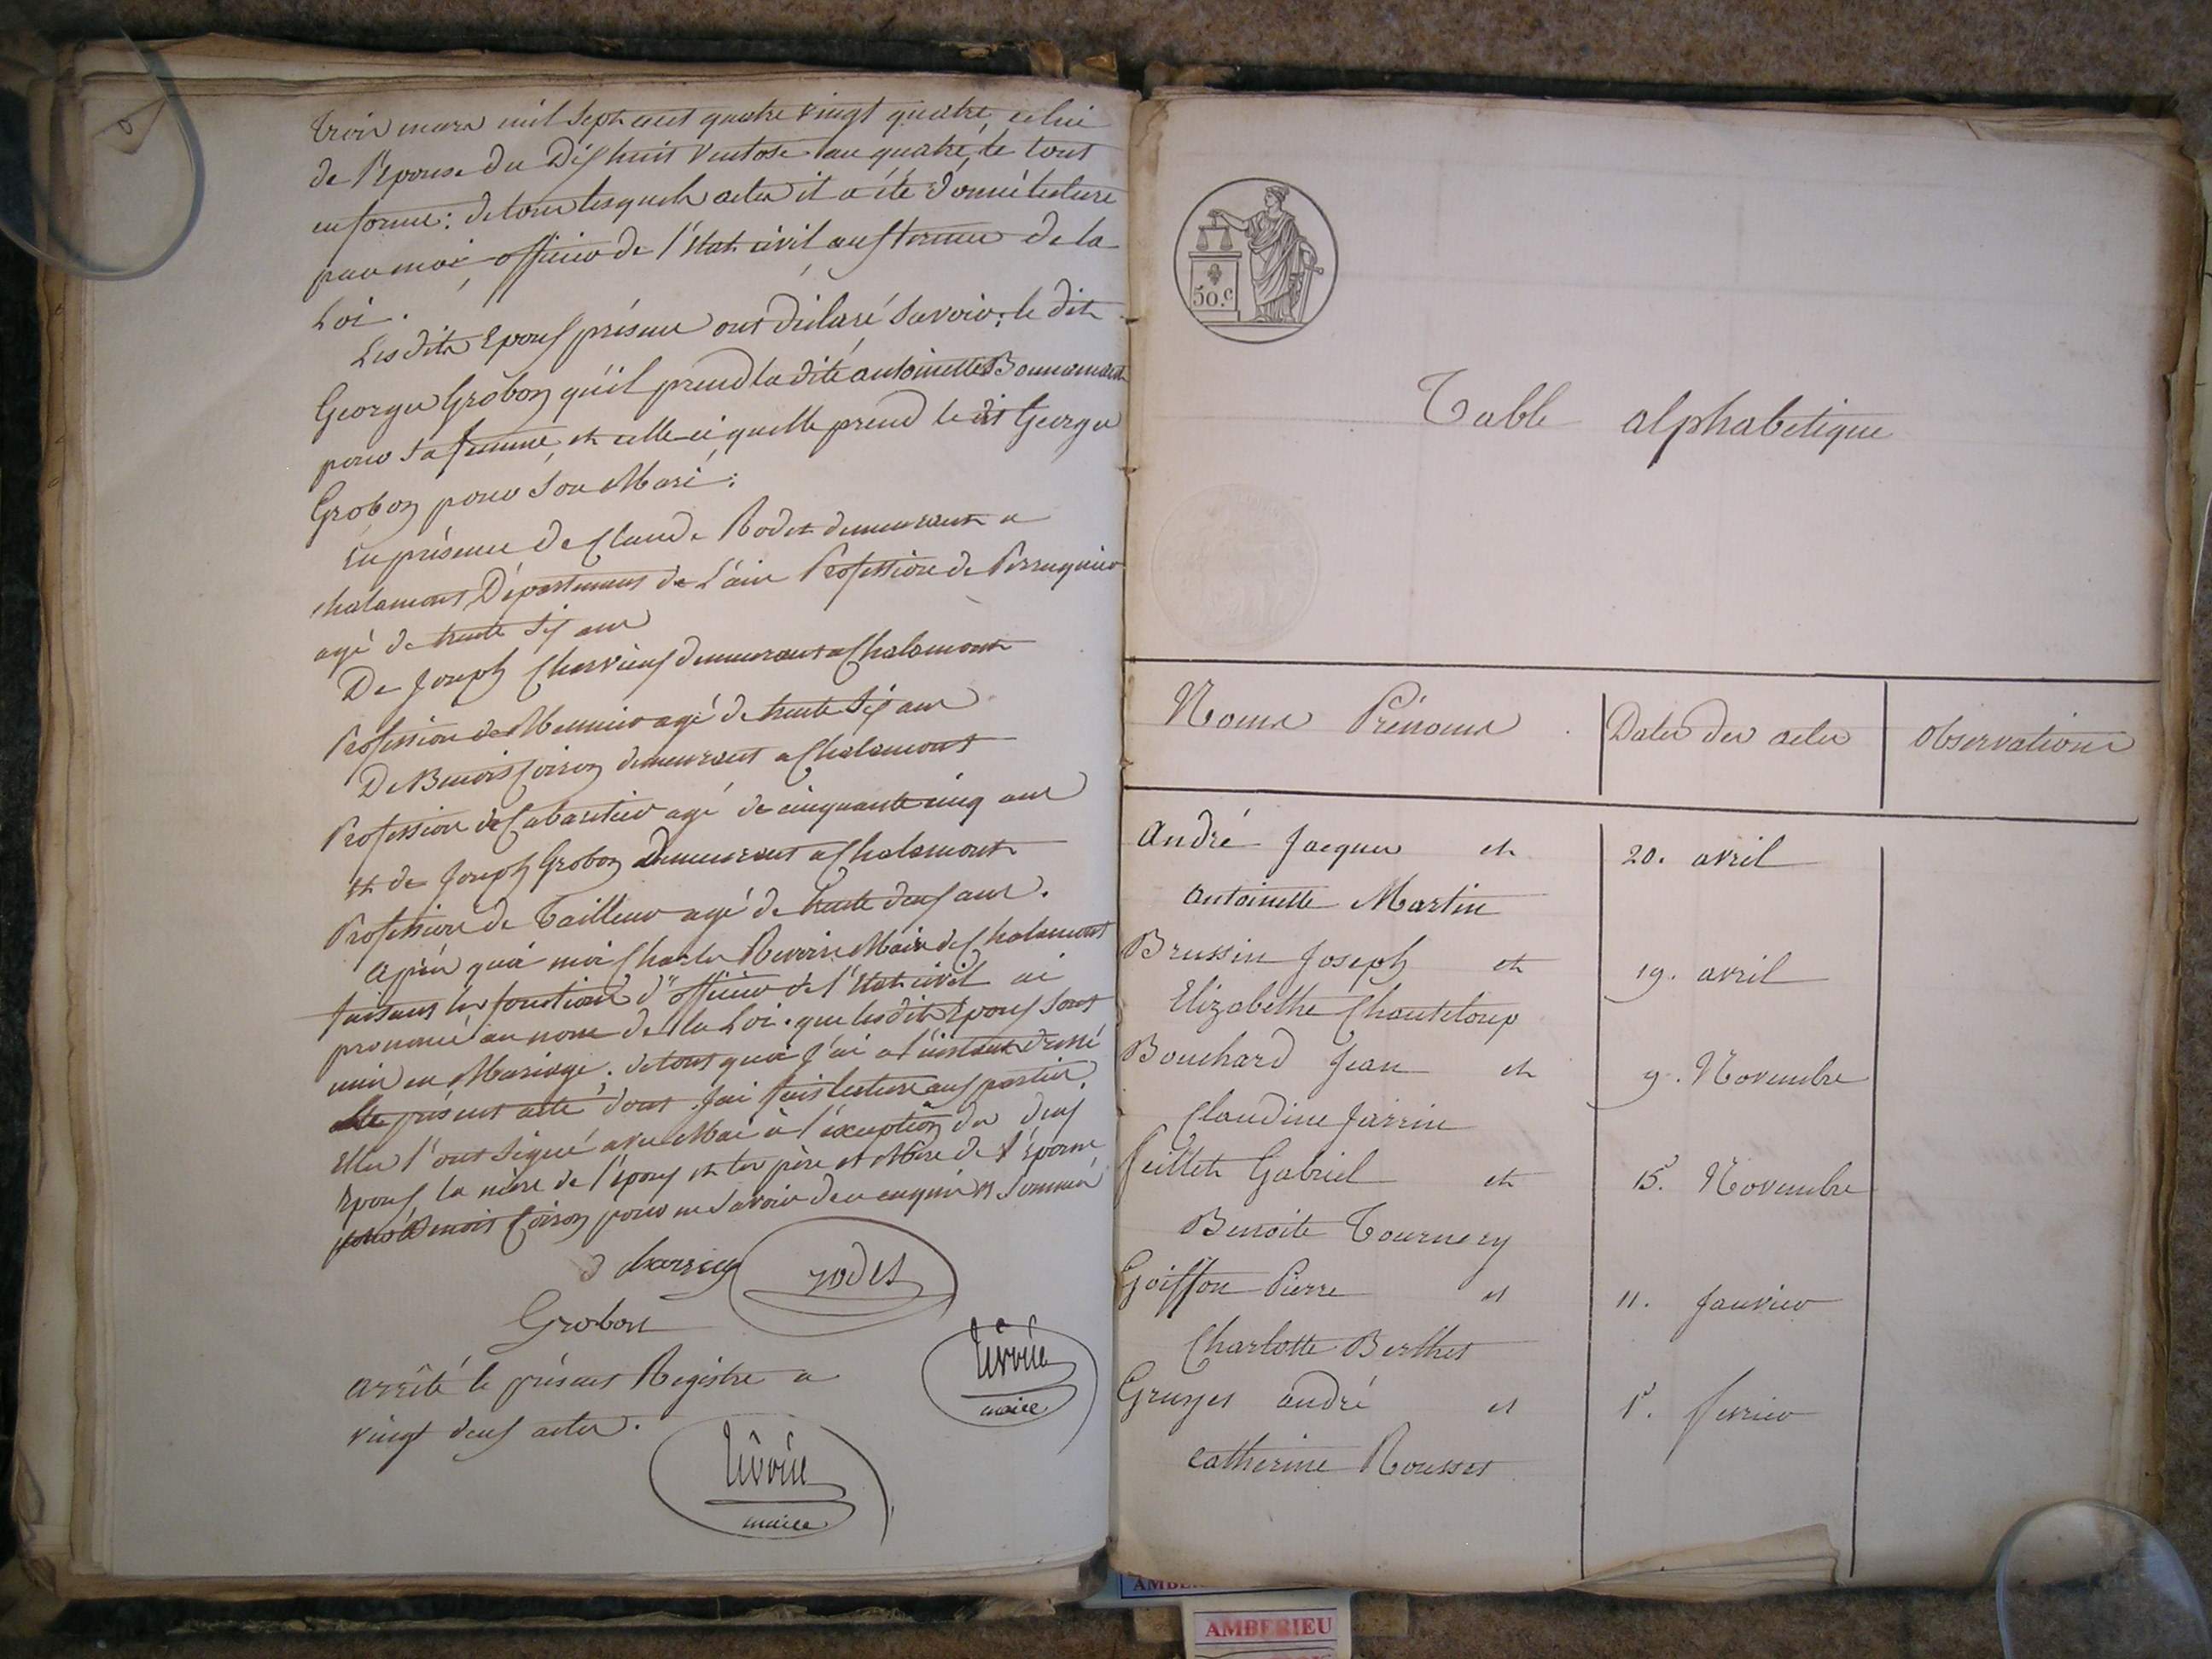 trois mars mil sept cent quatre vingt quatre, celui
de l'Epouse du Dix huit Ventose an quatre, le tout
en forme: de tous lesquels actes il a été donné lecture
par moi officier de l'Etat civil aux termes de la
Loi.
Les dits Epoux présens ont déclaré savoir; le dit
George Grobon qu'il prend la dite antoinette Bonnamant
pour sa femme, et celle ci quelle prend le dit George
Grobon pour son Mari:
En présence de Claude Rodet demeurant a
chalamont, Département de L'ain Profession de Perruquier
agé de trente six ans
De Joseph Charvieux demeurant a Chalamont
Profession de Meunier agé de trente six ans
De Benois Coiron demeurant a Chalamont
Profession de Cabaretier agé de cinquante cinq ans
et de Joseph Grobon Demeurant a Chalamont
Profession de Tailleur agé de trente deux ans.
après quoi moi Charles Mair de Chalamont
faisant les fonctions d'officier de l'Etat civil ai
prononcé au nom de la Loi. que les dits Epoux sont
unis en Mariage. de tout quoi j'ai a l'instant dressé
le présent acte, dont j'ai fais lecture aux parties,
Elles l'ont signé avec Moi à l'exception des deux
Epoux la mère de l'époux et les père et Mère de l'Epouse
Benois Coiron pour ne savoir de ce enquis et sommés
charvieux rodet
Grobon
arrêté le présent Registre a
maire
vingt deux actes.
maire
50.c
Table alphabetique
Noms Prénoms Dates des actes Observations
André Jacques et 20. avril
Antoinette Martin
Brussin Joseph et 19. avril
Elizabethe Chanteloup
Bouchard Jean et 9. Novembre
Claudine Jarrin
Feillet Gabriel et 15. Novembre
Benoite Tournery
Goiffon Pierre et 11. Janvier
Charlotte Berthet
andré et 1er. fevrier
Catherine Rousset
AMBERIEU